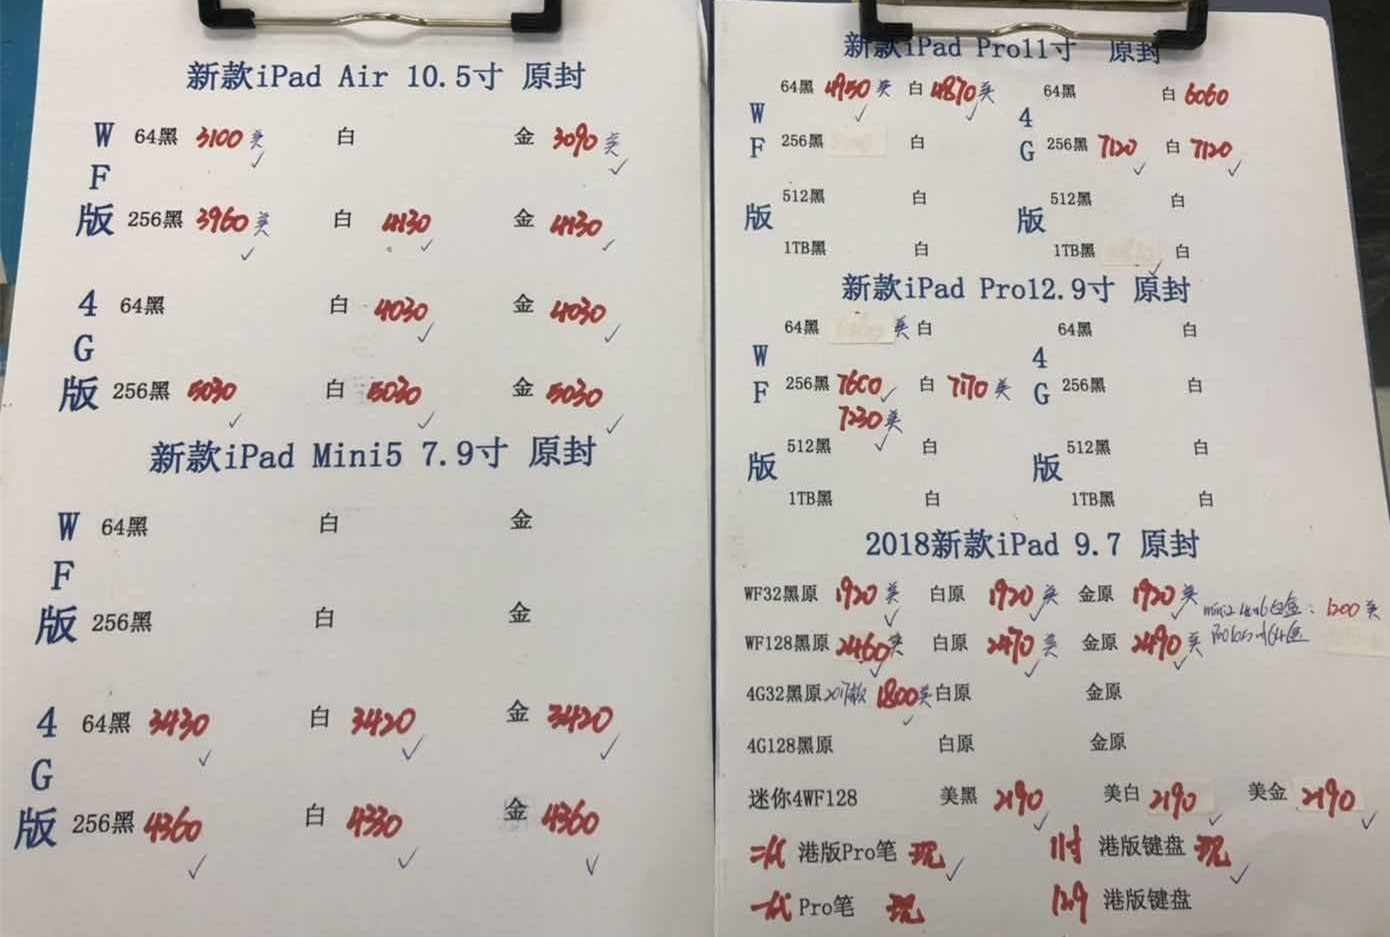 新款iPad Air 10.5寸 原封
W 64黑 3100 美 白 金 3090 美
F
版 256黑 3960 美 白 4130 金 4130
4 64黑 白 4030 金 4030
G
版 256黑 5030 白 5030 金 5030
新款iPad Mini5 7.9寸 原封
W 64黑 白 金
F
版 256黑 白 金
4 64黑 3430 白 3420 金 3420
G
版 256黑 4360 白 4330 金 4360
新款iPad Pro11寸 原封
64黑 4950 美 白 4870 美 64黑 白 6060
W 4
F 256黑 白 G 256黑 7120 白 7120
512黑 白 512黑 白
版 版
1TB黑 白 1TB黑 白
新款iPad Pro12.9寸 原封
64黑 美 白 64黑 白
W 4
F 256黑 白 7170 美 G 256黑 白
7230 美
512黑 白 512黑 白
版 版
1TB黑 白 1TB黑 白
2018新款iPad 9.7 原封
WF32黑原 1920 美 白原 1920 美 金原 1920 美
1200 美
WF128黑原 2460 美 白原 2470 美 金原 2490 美
4G32黑原 2017款 1800 美 白原 金原
4G128黑原 白原 金原
迷你4WF128 美黑 2190 美白 2190 美金 2190
二代 港版Pro笔 现 11寸 港版键盘 现
一代 Pro笔 现 12.9 港版键盘